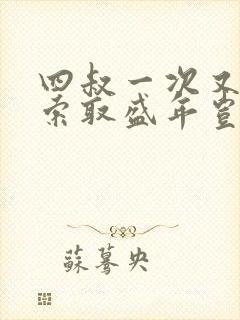 四叔一次又
索取盛年岂
蘇蓦央